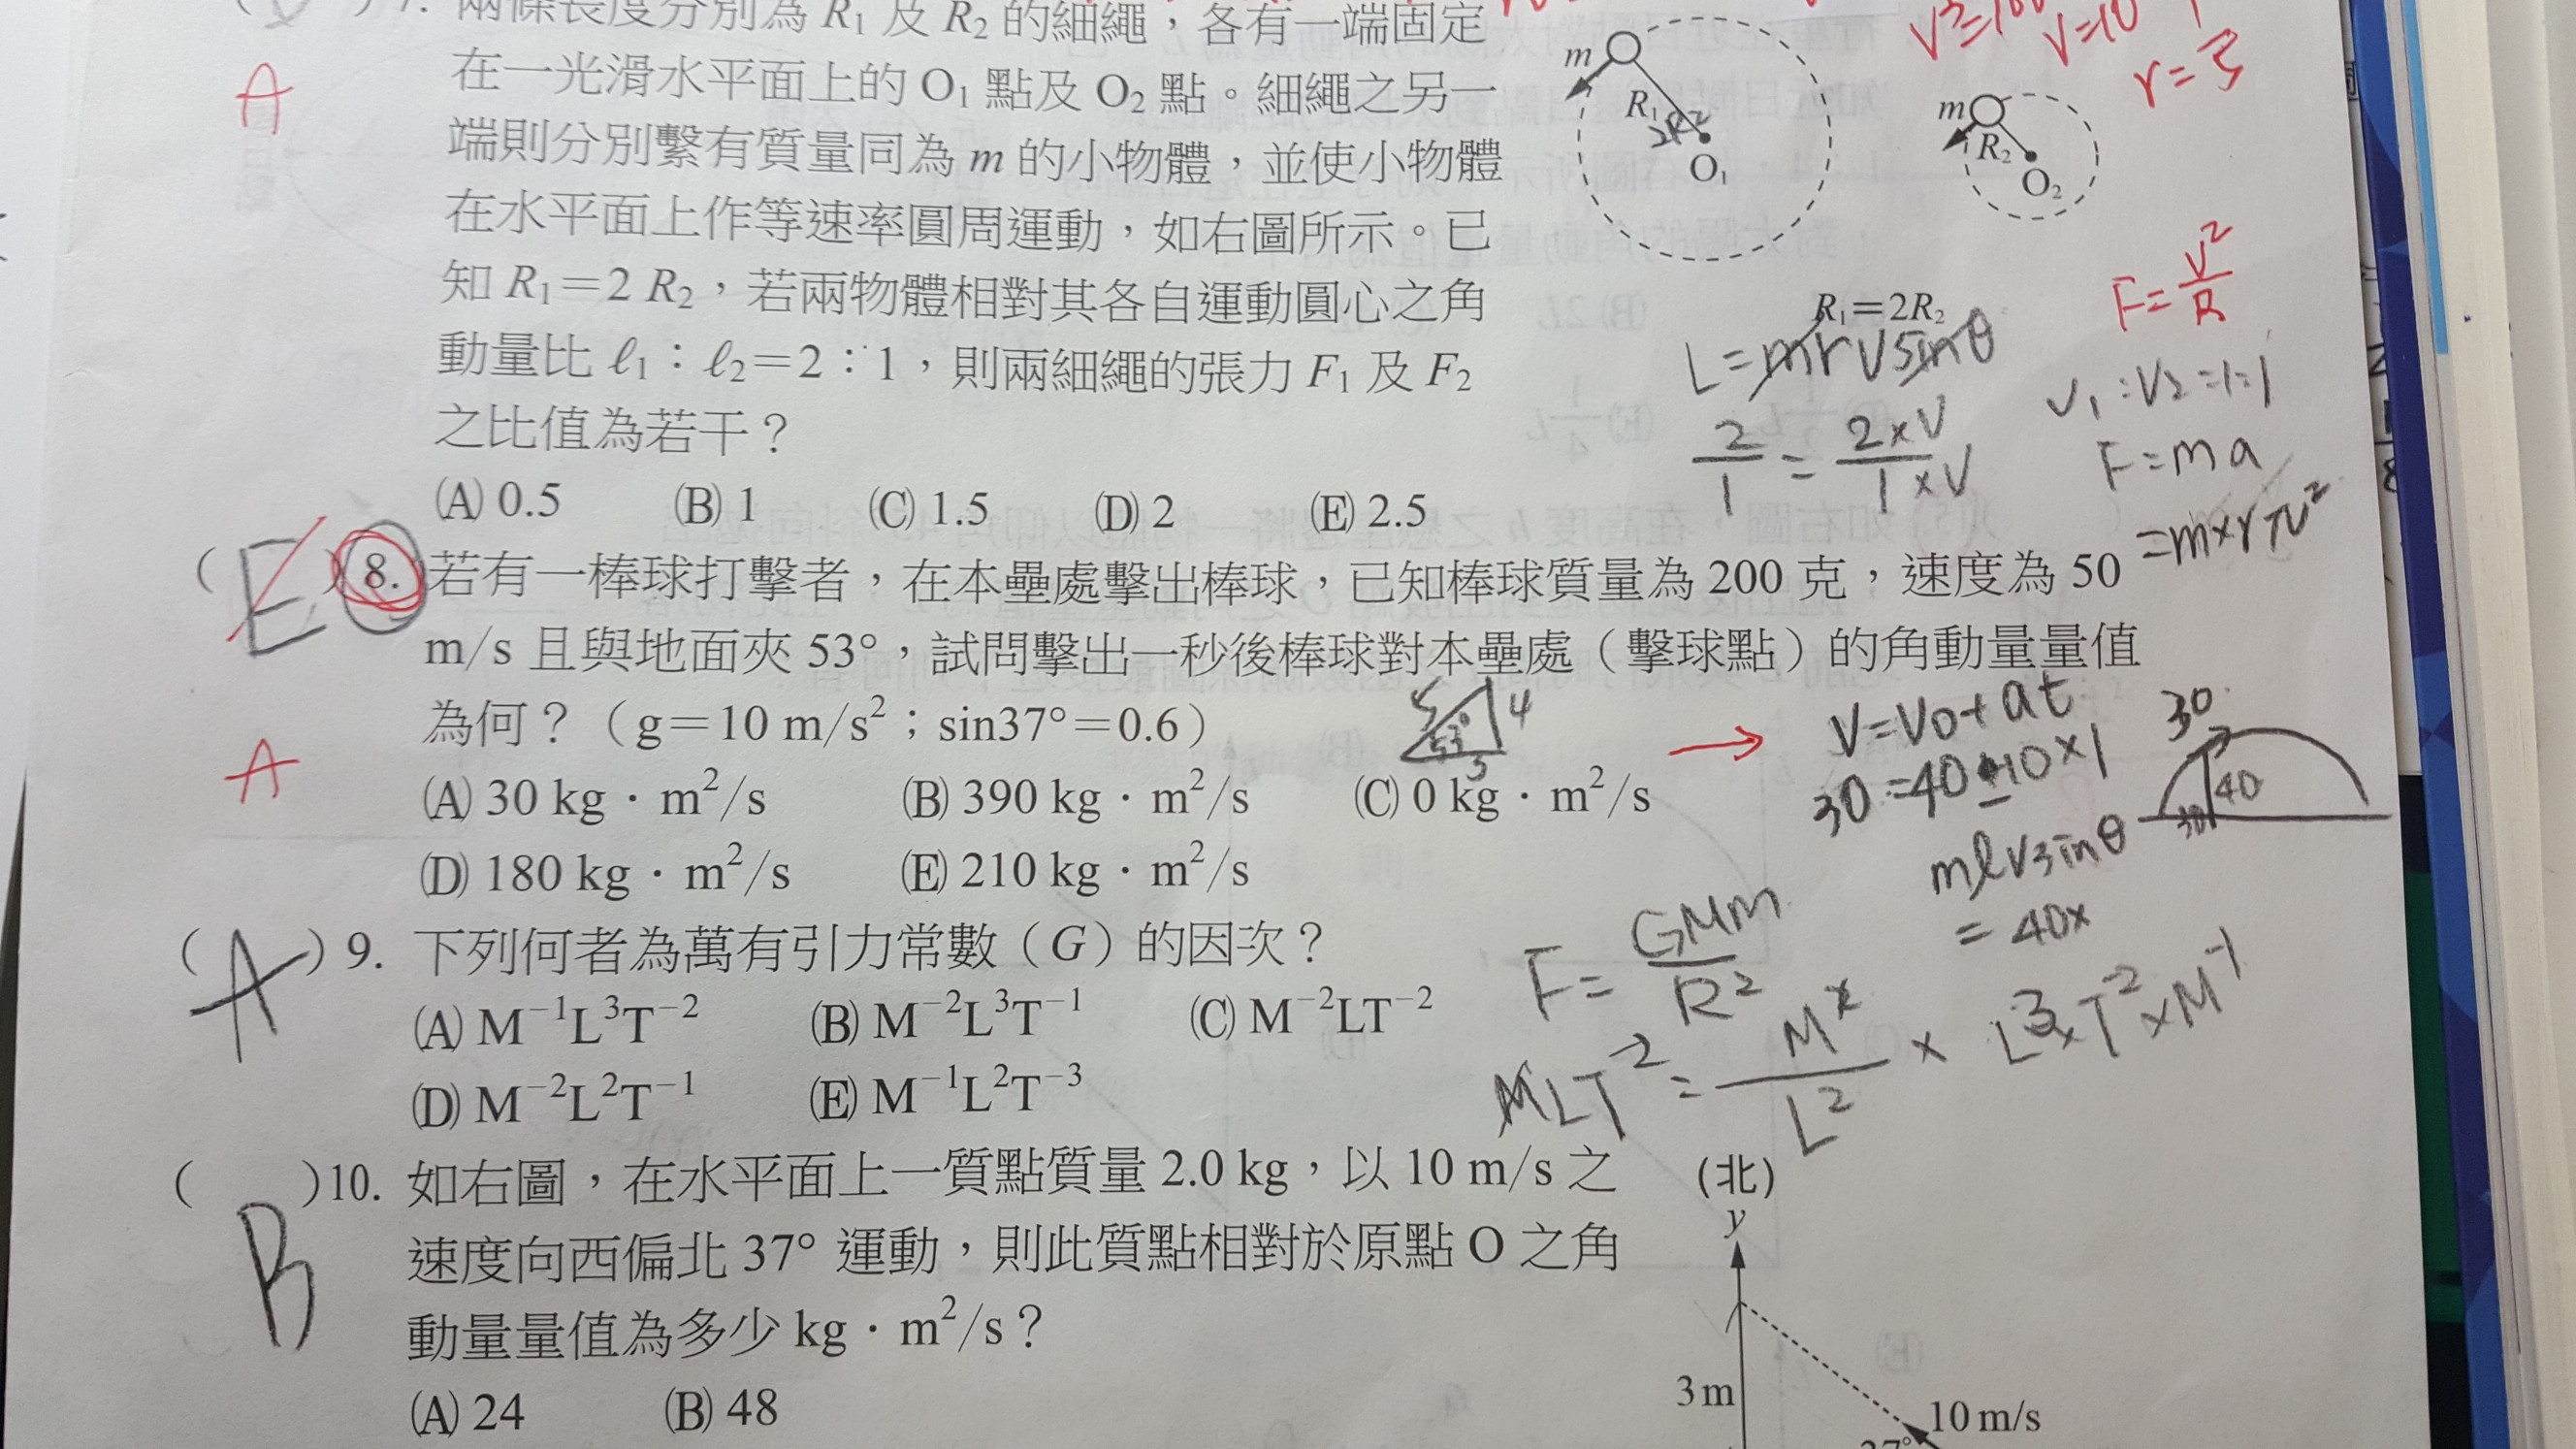 7. 兩條長度分別為 R₁ 及 R₂ 的細繩，各有一端固定
在一光滑水平面上的 O₁ 點及 O₂ 點。細繩之另一
端則分別繫有質量同為 m 的小物體，並使小物體
在水平面上作等速率圓周運動，如右圖所示。已
知 R₁＝2 R₂，若兩物體相對其各自運動圓心之角
動量比 ℓ₁：ℓ₂＝2：1，則兩細繩的張力 F₁ 及 F₂
之比值為若干？
(A) 0.5 (B) 1 (C) 1.5 (D) 2 (E) 2.5
A
m R₁ 2R₂ O₁
m R₂ O₂
R₁＝2R₂
V=10
r=5
F=V²/R
L=mrVsinθ
2/1 = 2×V/1×V
V₁:V₂=1:1
F=ma
(E) 8. 若有一棒球打擊者，在本壘處擊出棒球，已知棒球質量為 200 克，速度為 50
m/s 且與地面夾 53°，試問擊出一秒後棒球對本壘處（擊球點）的角動量量值
為何？（g＝10 m/s²；sin37°＝0.6）
(A) 30 kg．m²/s (B) 390 kg．m²/s (C) 0 kg．m²/s
(D) 180 kg．m²/s (E) 210 kg．m²/s
A
5 4 53° 3
V=V₀+at
30=40-10×1
30 40 30
mℓVsinθ
=40×
(A) 9. 下列何者為萬有引力常數（G）的因次？
(A) M⁻¹L³T⁻² (B) M⁻²L³T⁻¹ (C) M⁻²LT⁻²
(D) M⁻²L²T⁻¹ (E) M⁻¹L²T⁻³
F=GMm/R²
( ) 10. 如右圖，在水平面上一質點質量 2.0 kg，以 10 m/s 之
速度向西偏北 37° 運動，則此質點相對於原點 O 之角
動量量值為多少 kg．m²/s？
(A) 24 (B) 48
B
(北)
y
3 m
10 m/s
37°